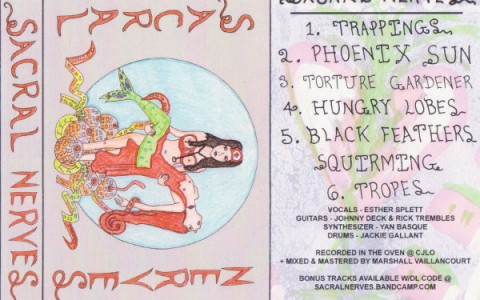 SACRAL NERVES
SACRAL
NERVES
SACRAL NERVES
1. TRAPPINGS
2. PHOENIX SUN
3. TORTURE GARDENER
4. HUNGRY LOBES
5. BLACK FEATHERS
SQUIRMING
6. TROPES
VOCALS - ESTHER SPLETT
GUITARS - JOHNNY DECK & RICK TREMBLES
SYNTHESIZER - YAN BASQUE
DRUMS - JACKIE GALLANT
RECORDED IN THE OVEN @ CJLO
+ MIXED & MASTERED BY MARSHALL VAILLANCOURT
BONUS TRACKS AVAILABLE W/DL CODE @
SACRALNERVES.BANDCAMP.COM